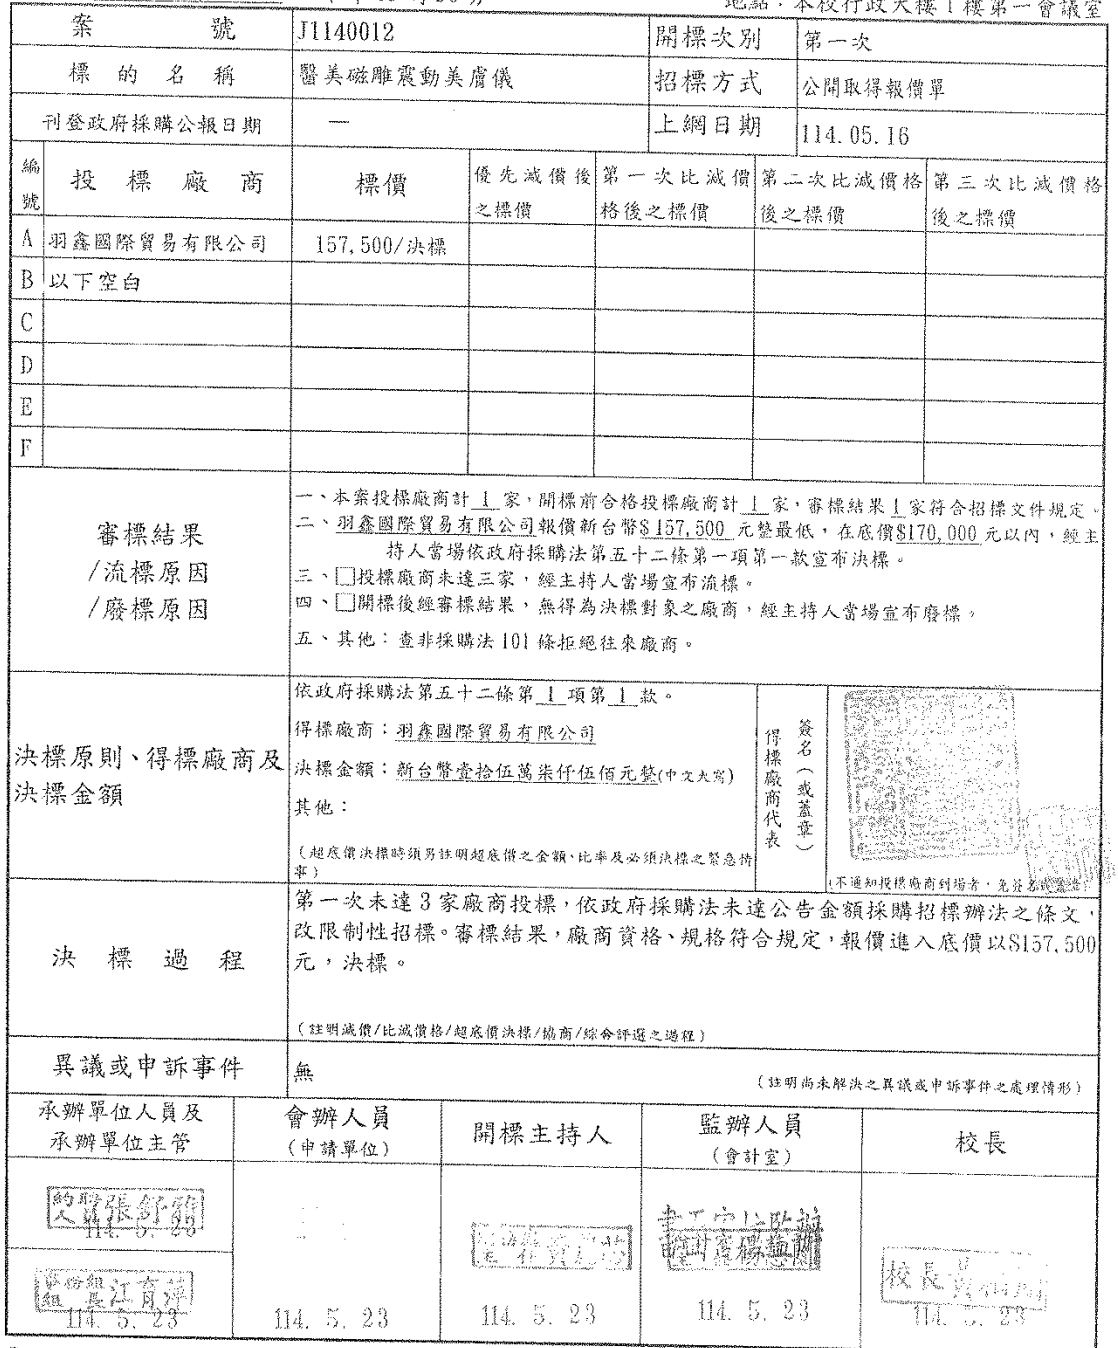 地點：本校行政大樓1樓第一會議室
案號 J1140012 開標次別 第一次
標的名稱 醫美磁雕震動美膚儀 招標方式 公開取得報價單
刊登政府採購公報日期 — 上網日期 114.05.16
編號 投標廠商 標價 優先減價後之標價 第一次比減價格後之標價 第二次比減價格後之標價 第三次比減價格後之標價
A 羽鑫國際貿易有限公司 157,500/決標
B 以下空白
C
D
E
F
審標結果
/流標原因
/廢標原因
一、本案投標廠商計 1 家，開標前合格投標廠商計 1 家，審標結果 1 家符合招標文件規定。
二、羽鑫國際貿易有限公司報價新台幣$157,500 元整最低，在底價$170,000 元以內，經主
持人當場依政府採購法第五十二條第一項第一款宣布決標。
三、□投標廠商未達三家，經主持人當場宣布流標。
四、□開標後經審標結果，無得為決標對象之廠商，經主持人當場宣布廢標。
五、其他：查非採購法101條拒絕往來廠商。
決標原則、得標廠商及
決標金額
依政府採購法第五十二條第 1 項第 1 款。
得標廠商：羽鑫國際貿易有限公司
決標金額：新台幣壹拾伍萬柒仟伍佰元整(中文大寫)
其他：
（超底價決標時須另註明超底價之金額、比率及必須決標之緊急情
事）
得標廠商代表
簽名（或蓋章）
(不通知投標廠商到場者，免簽名或蓋章)
決標過程
第一次未達3家廠商投標，依政府採購法未達公告金額採購招標辦法之條文，
改限制性招標。審標結果，廠商資格、規格符合規定，報價進入底價以$157,500
元，決標。
（註明減價/比減價格/超底價決標/協商/綜合評選之過程）
異議或申訴事件 無 （註明尚未解決之異議或申訴事件之處理情形）
承辦單位人員及
承辦單位主管
會辦人員
（申請單位）
開標主持人
監辦人員
（會計室）
校長
約聘人員張舒雅
114. 5. 23
組長江育萍
114. 5. 23
114. 5. 23
114. 5. 23
書面審核監辦
114. 5. 23
校長黃
114. 5. 23